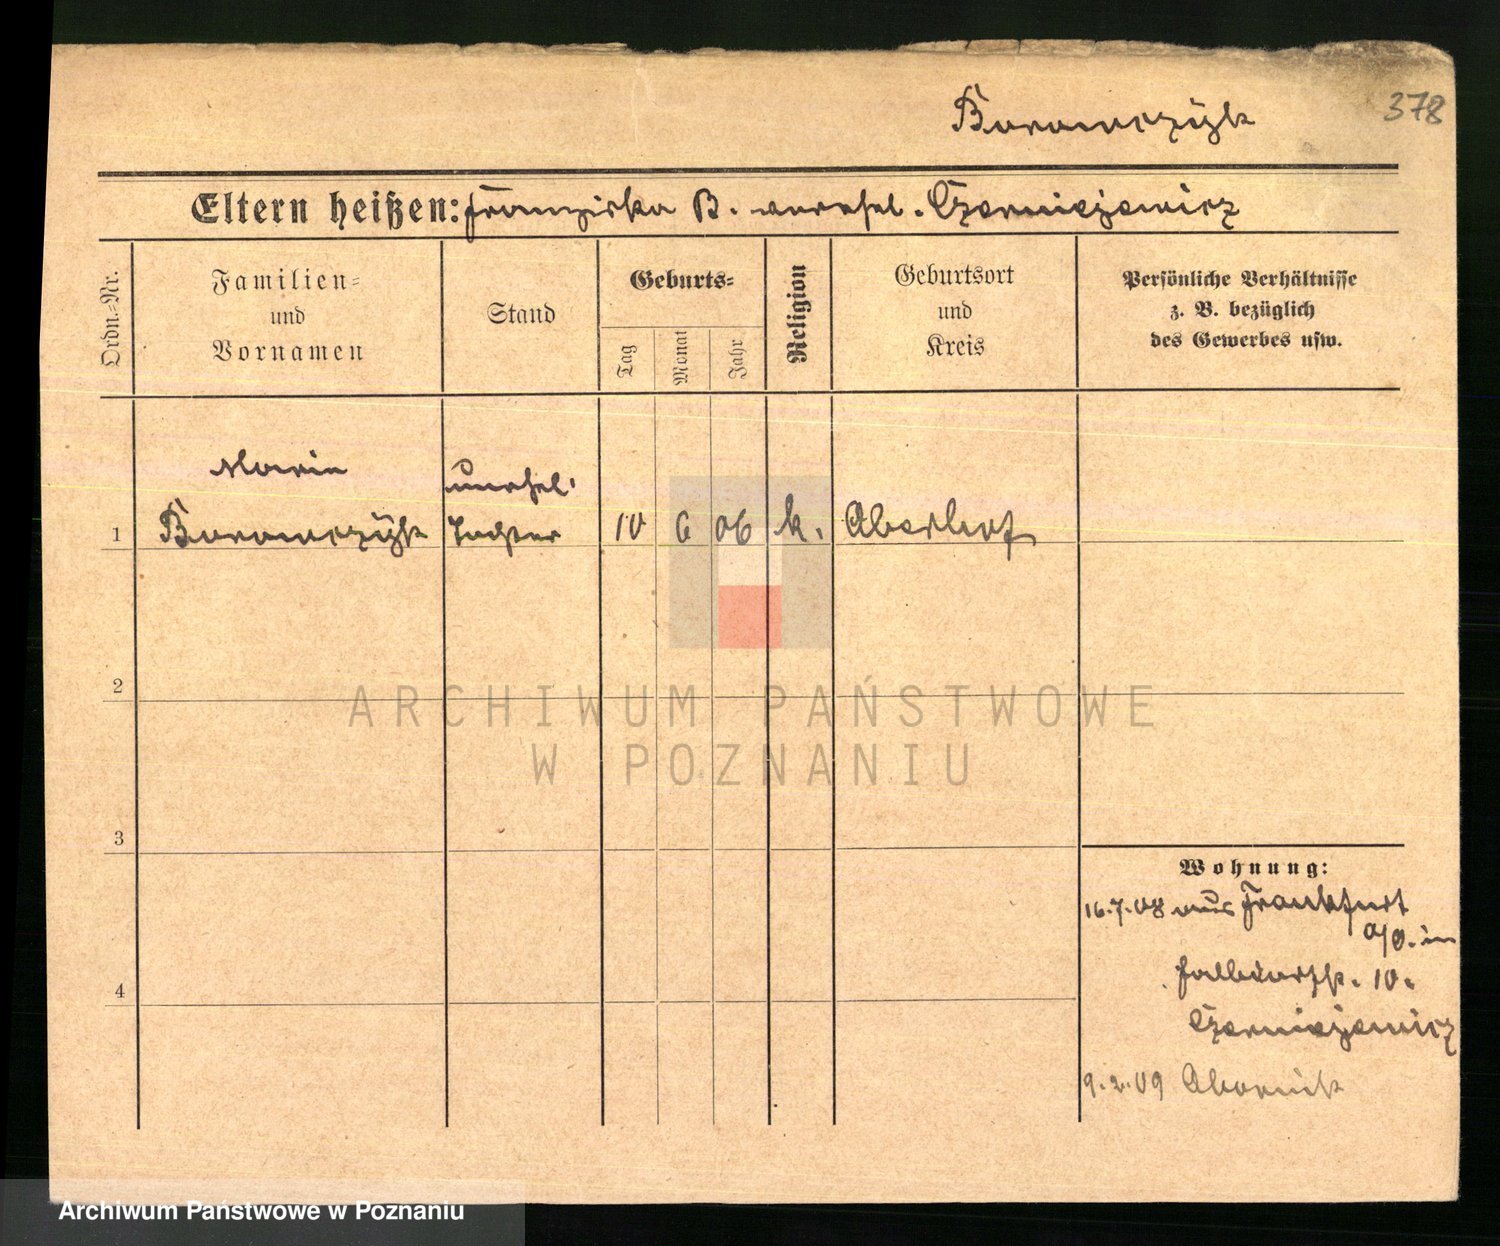 Borowczyk
378
Eltern heißen: Franziska B. verehel. Czerniejewicz
Ordn.-Nr.
Familien=
und
Vornamen
Stand
Geburts=
Tag
Monat
Jahr
Religion
Geburtsort
und
Kreis
Persönliche Verhältnisse
z. B. bezüglich
des Gewerbes usw.
Marie
unehel.
1 Borowczyk Tochter 10 6 06 k.
2
3
4
Wohnung:
16.7.08 aus Frankfurt
a/O. in
10.
Czerniejewicz
9.2.09 Obornik
ARCHIWUM PAŃSTWOWE
W POZNANIU
Archiwum Państwowe w Poznaniu